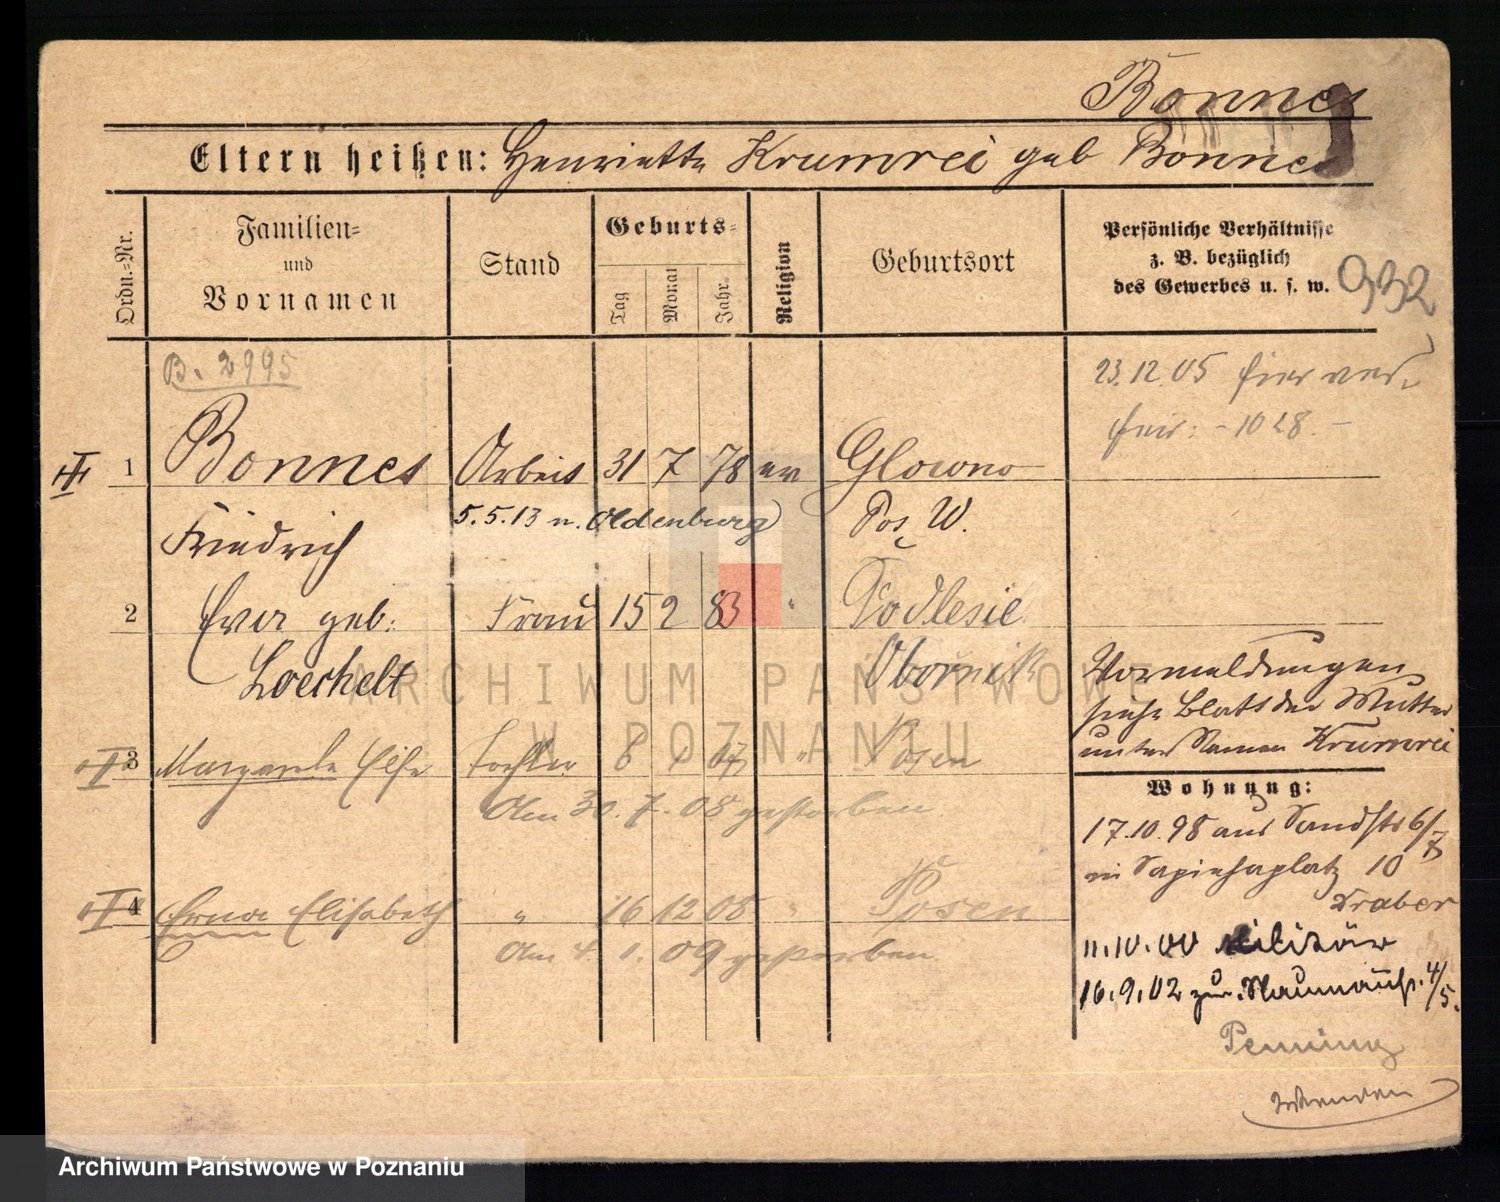 Bonnes
Eltern heißen: Henriette Krumrei geb Bonnes
Ordn.=Nr.
Familien=
und
Vornamen
Stand
Geburts=
Tag
Monat
Jahr.
Religion
Geburtsort
Persönliche Verhältnisse
z. B. bezüglich
des Gewerbes u. s. w.
932
B. 2995
23.12.05 hier
1028.
III 1 Bonnes Arbeit 31 7 78 ev Glowno
Friedrich 5.5.13 n. Oldenburg Pos W.
2 Eva geb: Frau 15 2 83 " Podlesie
Loechelt Obornik
Vormeldungen
siehe Blatt der Mutter
unter Namen Krumrei
3 Margarete Else Tochter 8 1 07 " Posen
Am 30. 7. 08 gestorben
Wohnung:
17.10.98 aus Sandstr 6/7
in Sapiehaplatz 10
Draber
4 Erna Elisabeth " 16 12 08 " Posen
Am 4. 1. 09 gestorben
11.10.00 Militär
16.9.02 zur. Naumannstr. 4/5.
Penning
Wenden
ARCHIWUM PAŃSTWOWE
W POZNANIU
Archiwum Państwowe w Poznaniu